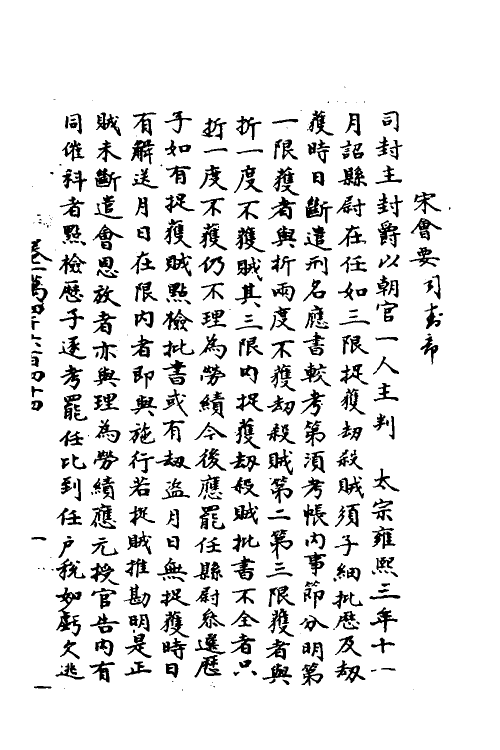 宋會要 司封部
司封主封爵以朝官一人主判 太宗雍熙三年十一
月詔縣尉在任如三限捉獲劫殺賊須子細批歷及劫
獲時日斷遣刑名應書較考第須考帳內事節分明第
一限獲者與折兩度不獲劫殺賊第二第三限獲者與
折一度不獲賊其三限內捉獲劫殺賊批書不全者只
折一度不獲仍不理為勞績今後應罷任縣尉叅選歷
子如有捉獲賊點檢批書或有劫盜月日無捉獲時日
有解送月日在限內者即與施行若捉賊推勘明是正
賊未斷遣會恩放者亦與理為勞績應元授官告內有
同催科者點檢歷子逐考罷任比到任戶稅如虧欠逃
卷一萬四千六百四十四
一